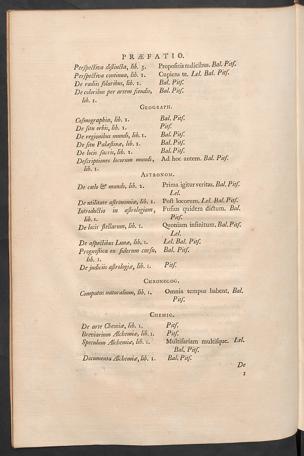 PRÆFATIO.
Perspectiva distincta, lib. 3. Propositis radicibus. Bal. Pits.
Perspectiva continua, lib. 1. Cupiens te. Lel. Bal. Pits.
De radiis solaribus, lib. 1. Bal. Pits.
De coloribus per artem fiendis, Bal. Pits.
lib. 1.
GEOGRAPH.
Cosmographia, lib. 1. Bal. Pits.
De situ orbis, lib. 1. Pits.
De regionibus mundi, lib. 1. Bal. Pits.
De situ Palæstinæ, lib. 1. Bal. Pits.
De locis sacris, lib. 1. Bal. Pits.
Descriptiones locorum mundi, Ad hoc autem. Bal. Pits.
lib. 1.
ASTRONOM.
De cælo & mundo, lib. 2. Prima igitur veritas. Bal. Pits.
Lel.
De utilitate astronomiæ, lib. 1. Post locorum. Lel. Bal. Pits.
Introductio in astrologiam, Fusius quidem dictum. Bal.
lib. 1. Pits.
De locis stellarum, lib. 1. Quoniam infinitum. Bal. Pits.
Lel.
De aspectibus Lunæ, lib. 1. Lel. Bal. Pits.
Prognostica ex siderum cursu, Bal. Pits.
lib. 1.
De judiciis astrologiæ, lib. 1. Pits.
CHRONOLOG.
Computus naturalium, lib. 1. Omnia tempus habent, Bal.
Pits.
CHEMIC.
De arte Chemiæ, lib. 1. Pits.
Breviarium Alchemiæ, lib. 1. Pits.
Speculum Alchemiæ, lib. 1. Multifariam multisque. Lel.
Bal. Pits.
Documenta Alchemiæ, lib. 1. Bal. Pits.
De
1